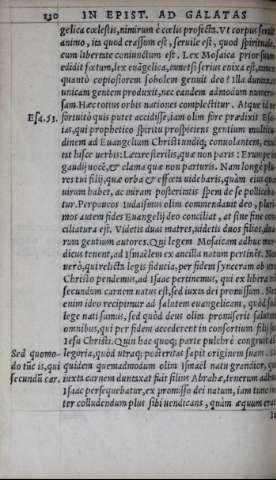 130 IN EPIST. AD GALATAS
gelica cœlestis, nimirum è cœlis profecta. Vt corpus seruit
animo, ita quod crassum est, seruile est, quod spirituale,
cum libertate coniunctum est. Lex Mosaica prior suum
edidit fœtum, lex euãgelica, tametsi serius enixa est, tamen
quantò copiosiorem sobolem genuit deo? Illa duntaxat
unicam gentem produxit, nec eandem admodum numero
sam. Hæc totius orbis nationes complectitur. Atque id ne
Esa.53. fortuitò quis putet accidisse, iam olim fore prædixit Esa-
ias, qui prophetico spiritu prospiciens gentium multitu
dinem ad Euangelium Christi undiq; conuolantem,
tit hisce uerbis: Lætare sterilis, quæ non paris: Erumpe in
gaudij uocē, & clama quæ non parturis. Nam longe plu-
res tui filij, quæ orba & effœta uidebaris, quàm eius quæ
uirum habet, ac miram posteritatis spem de se pollicebe
tur. Perpaucos Iudaismus olim commendauit deo, pluri-
mos autem fides Euangelij deo conciliat, at sine fine con
ciliatura est. Videtis duas matres, uidetis duos filios, duo
rum gentium autores. Qui legem Mosaicam adhuc mor
dicus tenent, ad Ismaëlem ex ancilla natum pertinēt. Nos
uerò, qui relicta legis fiducia, per fidem synceram ab uno
Christo pendemus, ad Isaac pertinemus, qui ex libera non
secundum carnem natus est, sed iuxta dei promissum. Non
enim ideo recipimur ad salutem euangelicam, quòd sub
lege nati samus, sed quòd deus olim promiserit salutem
omnibus, qui per fidem accederent in consortium filij sui
Iesu Christi. Quin hac quoq; parte pulchrè congruit al
Sed quomo- legoria, quòd utraq; posteritas sapit originem suam. Si
do tūc is, qui quidem quemadmodum olim Ismaël natu grandior, qui
secundū car. iuxta carnem duntaxat fuit filius Abrahæ, tenerum adhuc
Isaac persequebatur, ex promisso dei natum, iam tunc in
ter colludendum plus sibi uendicans, quàm æquum erat